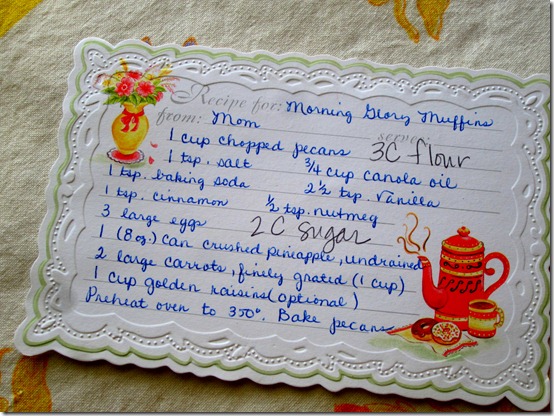 Recipe for: Morning Glory Muffins
from: Mom
serves:
1 cup chopped pecans 3C flour
1 tsp. salt 3/4 cup canola oil
1 tsp. baking soda 2 1/2 tsp. vanilla
1 tsp. cinnamon 1/2 tsp. nutmeg
3 large eggs 2 C sugar
1 (8 oz.) can crushed pineapple, undrained
2 large carrots, finely grated (1 cup)
1 cup golden raisins (optional)
Preheat oven to 350°. Bake pecans